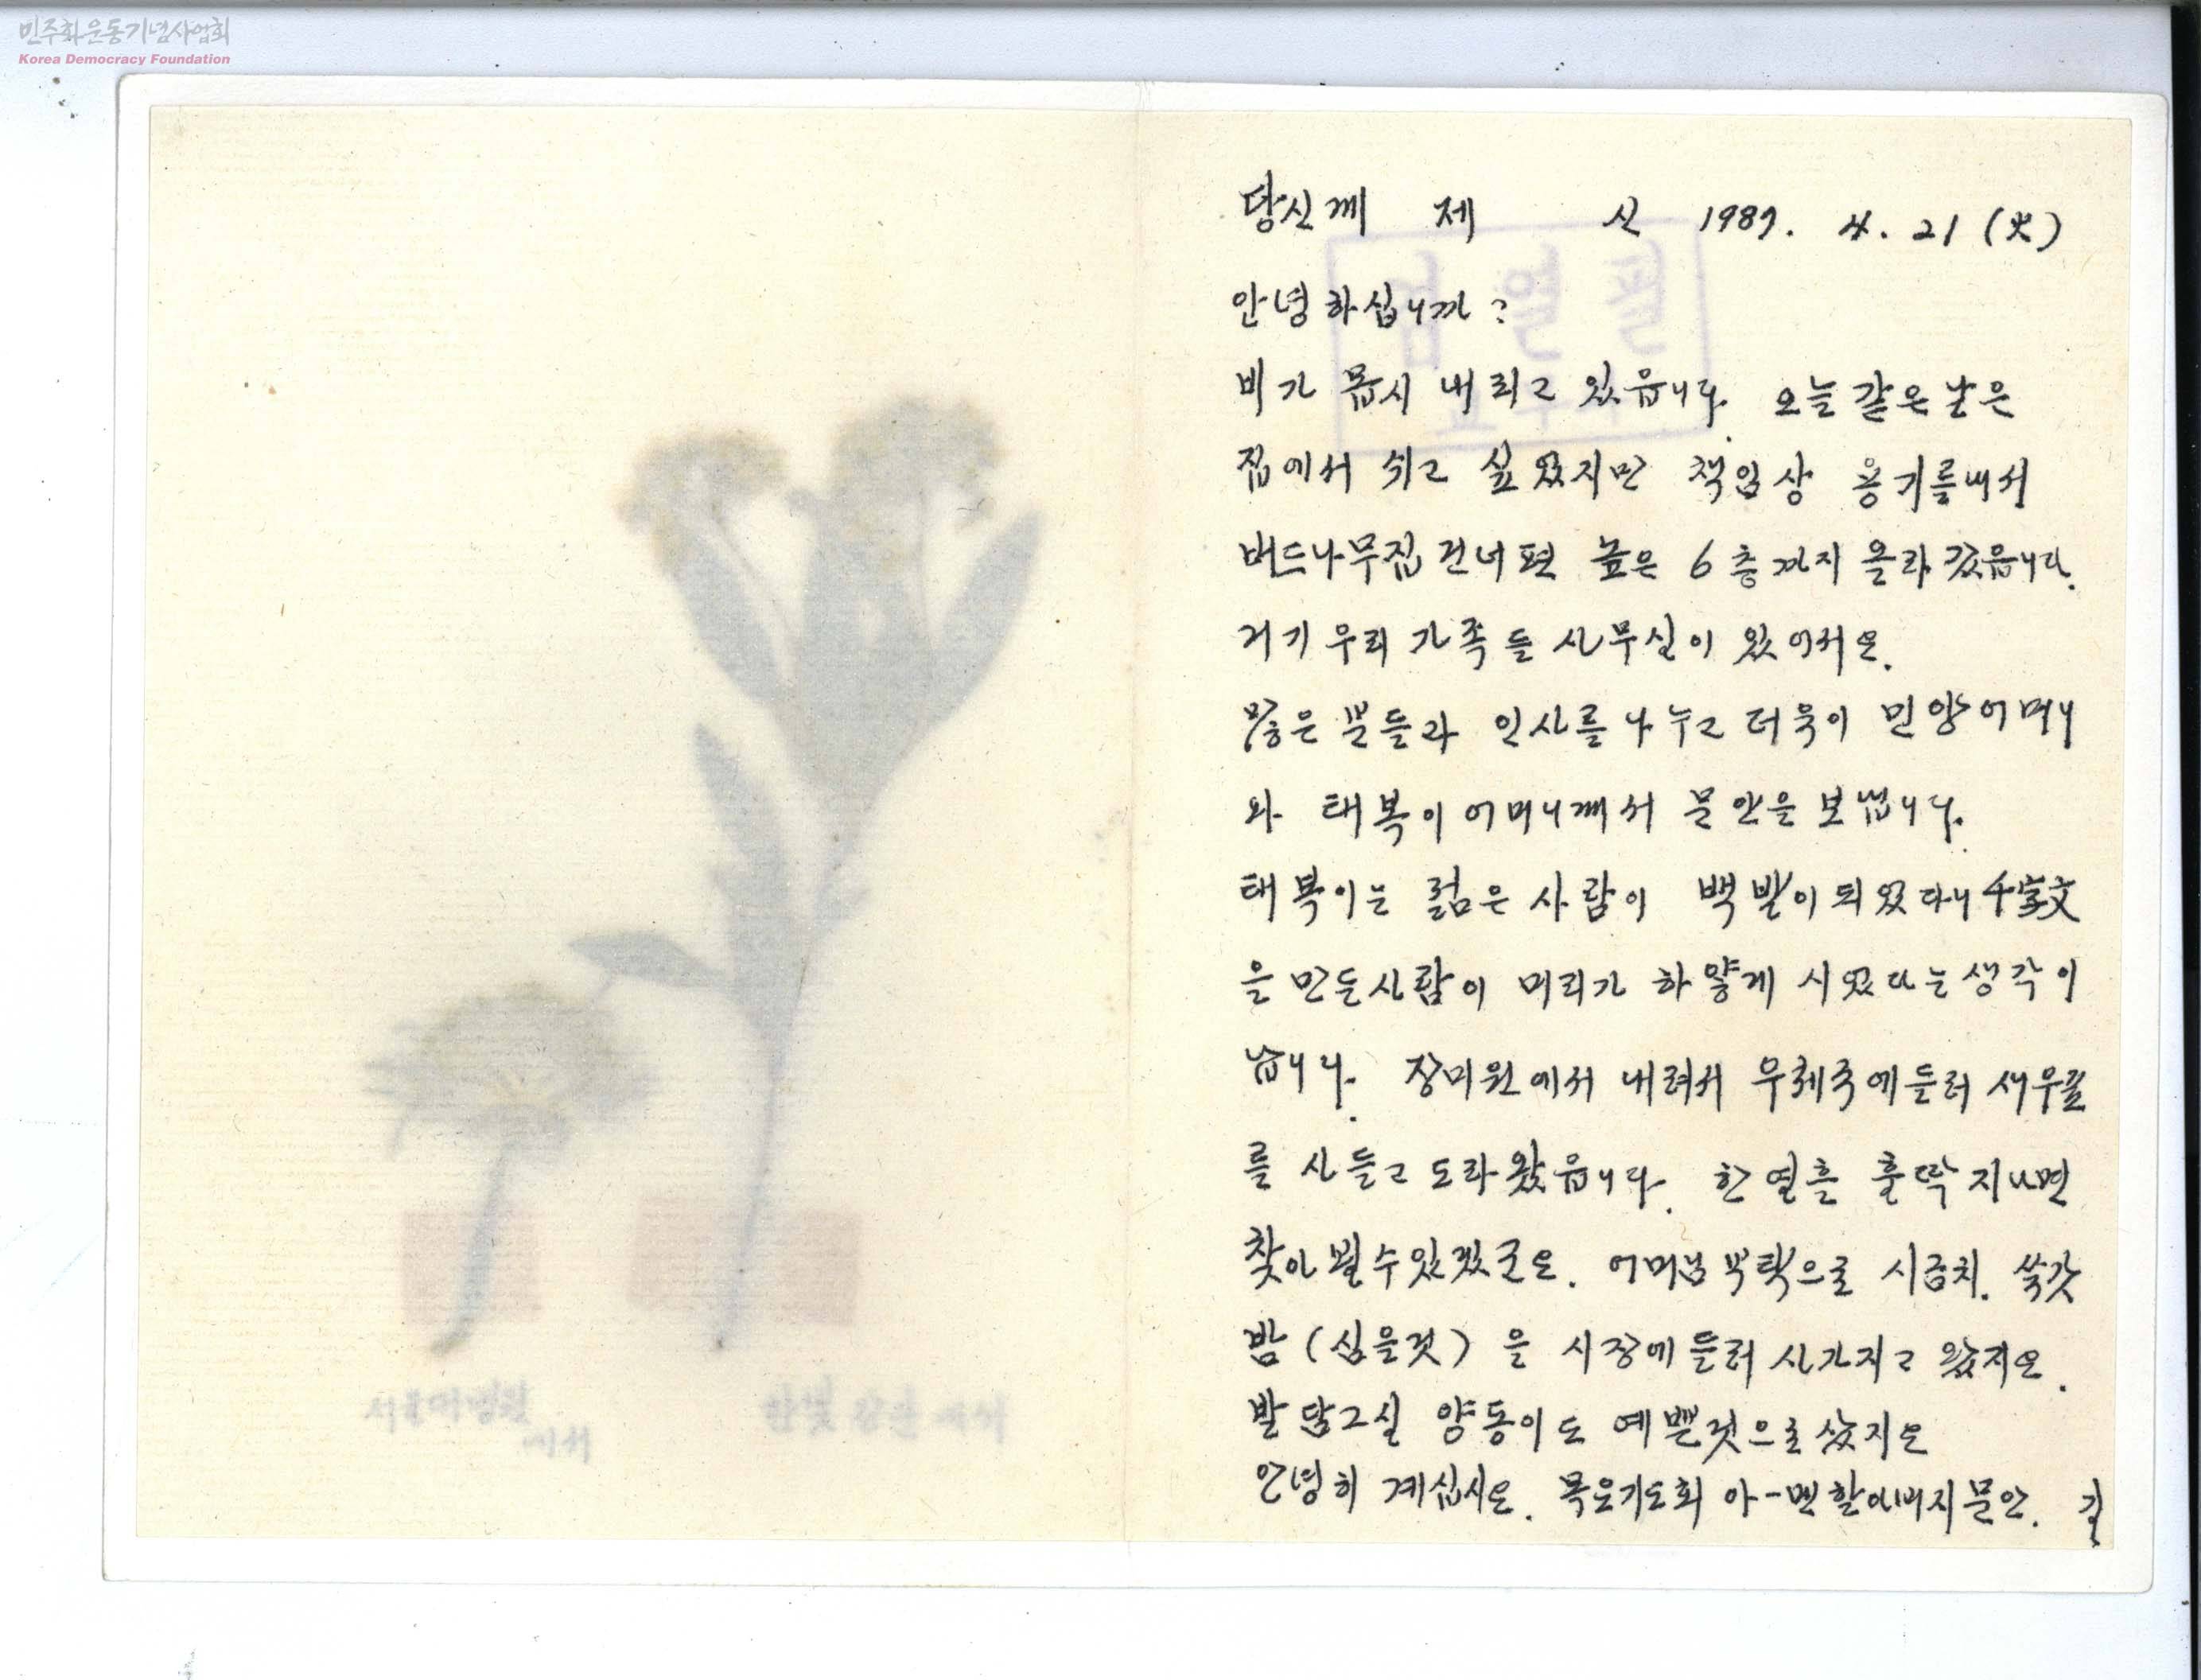 민주화운동기념사업회
Korea Democracy Foundation
당신께 제 신 1987. 4. 21 (火)
안녕하십니까?
비가 몹시 내리고 있읍니다. 오늘 같은 날은
집에서 쉬고 싶었지만 책임상 용기를내서
버드나무집 건너편 높은 6층까지 올라 갔읍니다.
거기 우리 가족들 사무실이 있어서요.
많은 분들과 인사를 나누고 더욱이 민양어머니
와 태복이 어머니께서 문안을 보냅니다.
태복이는 젊은 사람이 백발이 되었다니 千字文
을 만든사람이 머리가 하얗게 시었다는 생각이
납니다. 장미원에서 내려서 우체국에들러 새우표
를 사들고 도라왔읍니다. 한 열흘 훌딱 지나면
찾아 뵐 수 있겠군요. 어머님 부탁으로 시금치. 쑥갓
밤 (심을것) 을 시장에 들러 사가지고 왔지요.
발 담그실 양동이도 예쁜것으로 샀지요
안녕히 계십시요. 목요기도회 아-멘할아버지문안. 길
서울대병원
에서